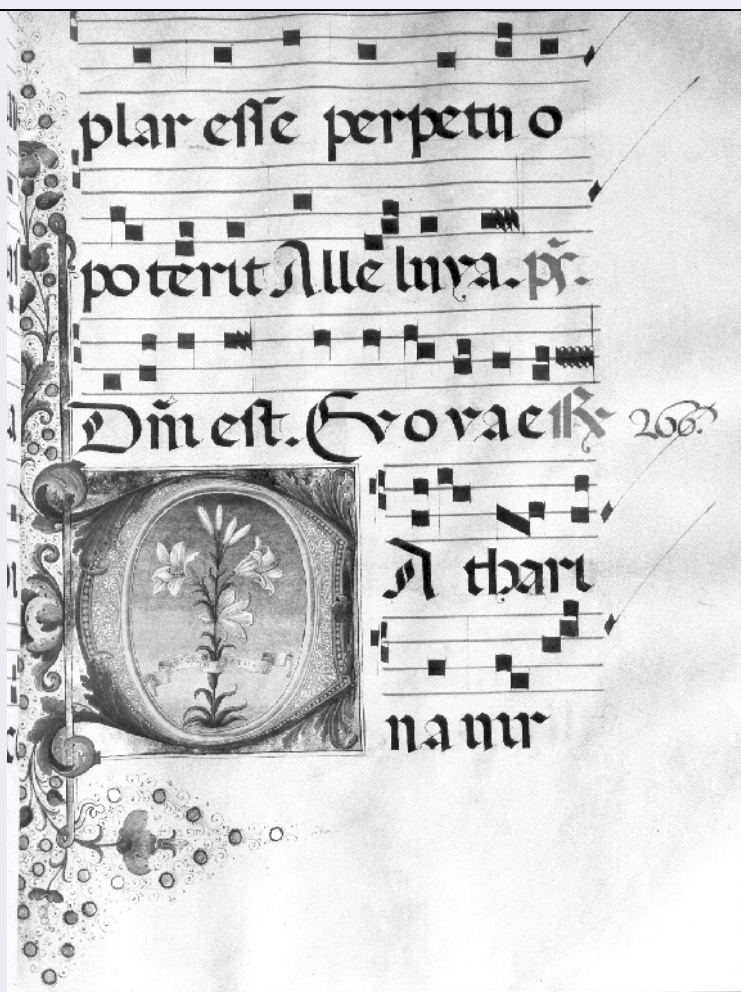 plar esse perpetuo
poterit Alleluya. ps.
Dñi est. Evovae R 266.
CAthari
na uir